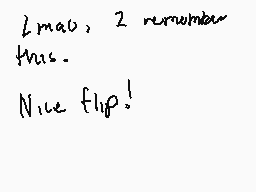 Lmao, I remember
this.
Nice flip!